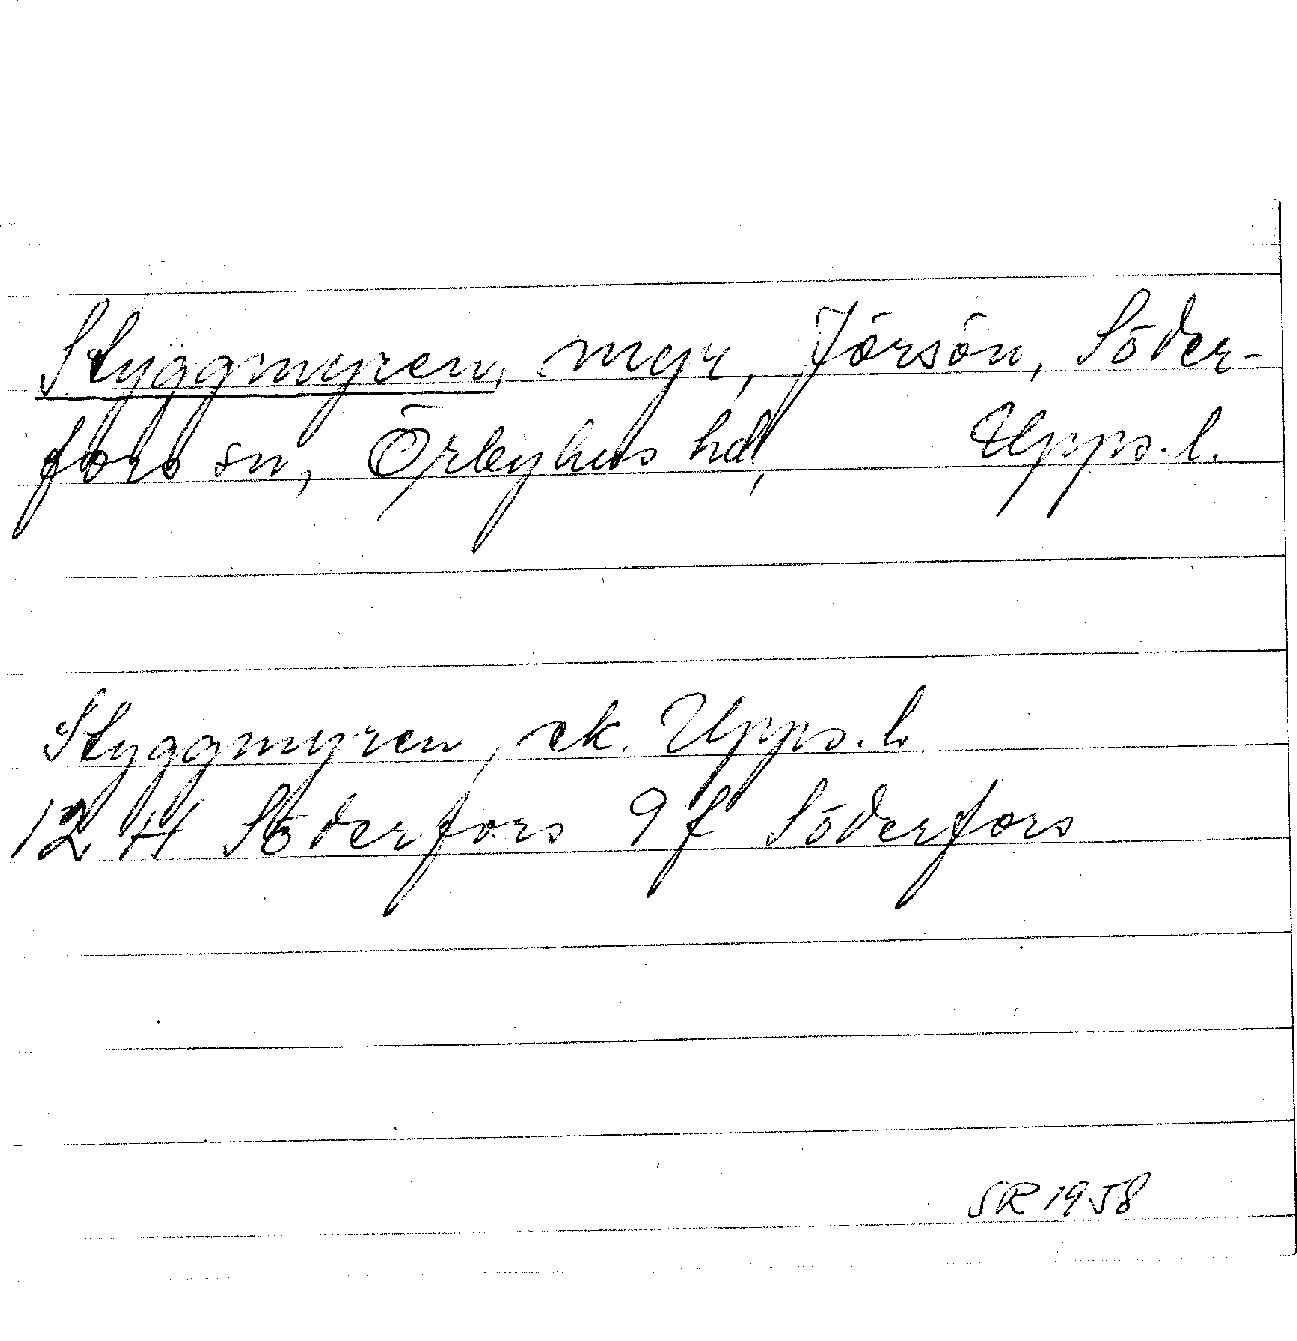 Styggmyren, myr, Jörsön, Söder-
fors sn, Örbyhus hd, Upps. l.
Styggmyren, ek. Upps. l.
12 H Söderfors 9 f Söderfors
SR 1958